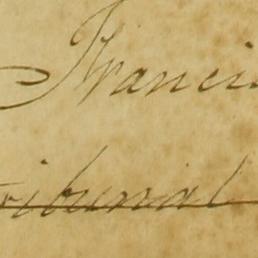 Franci
ribunal